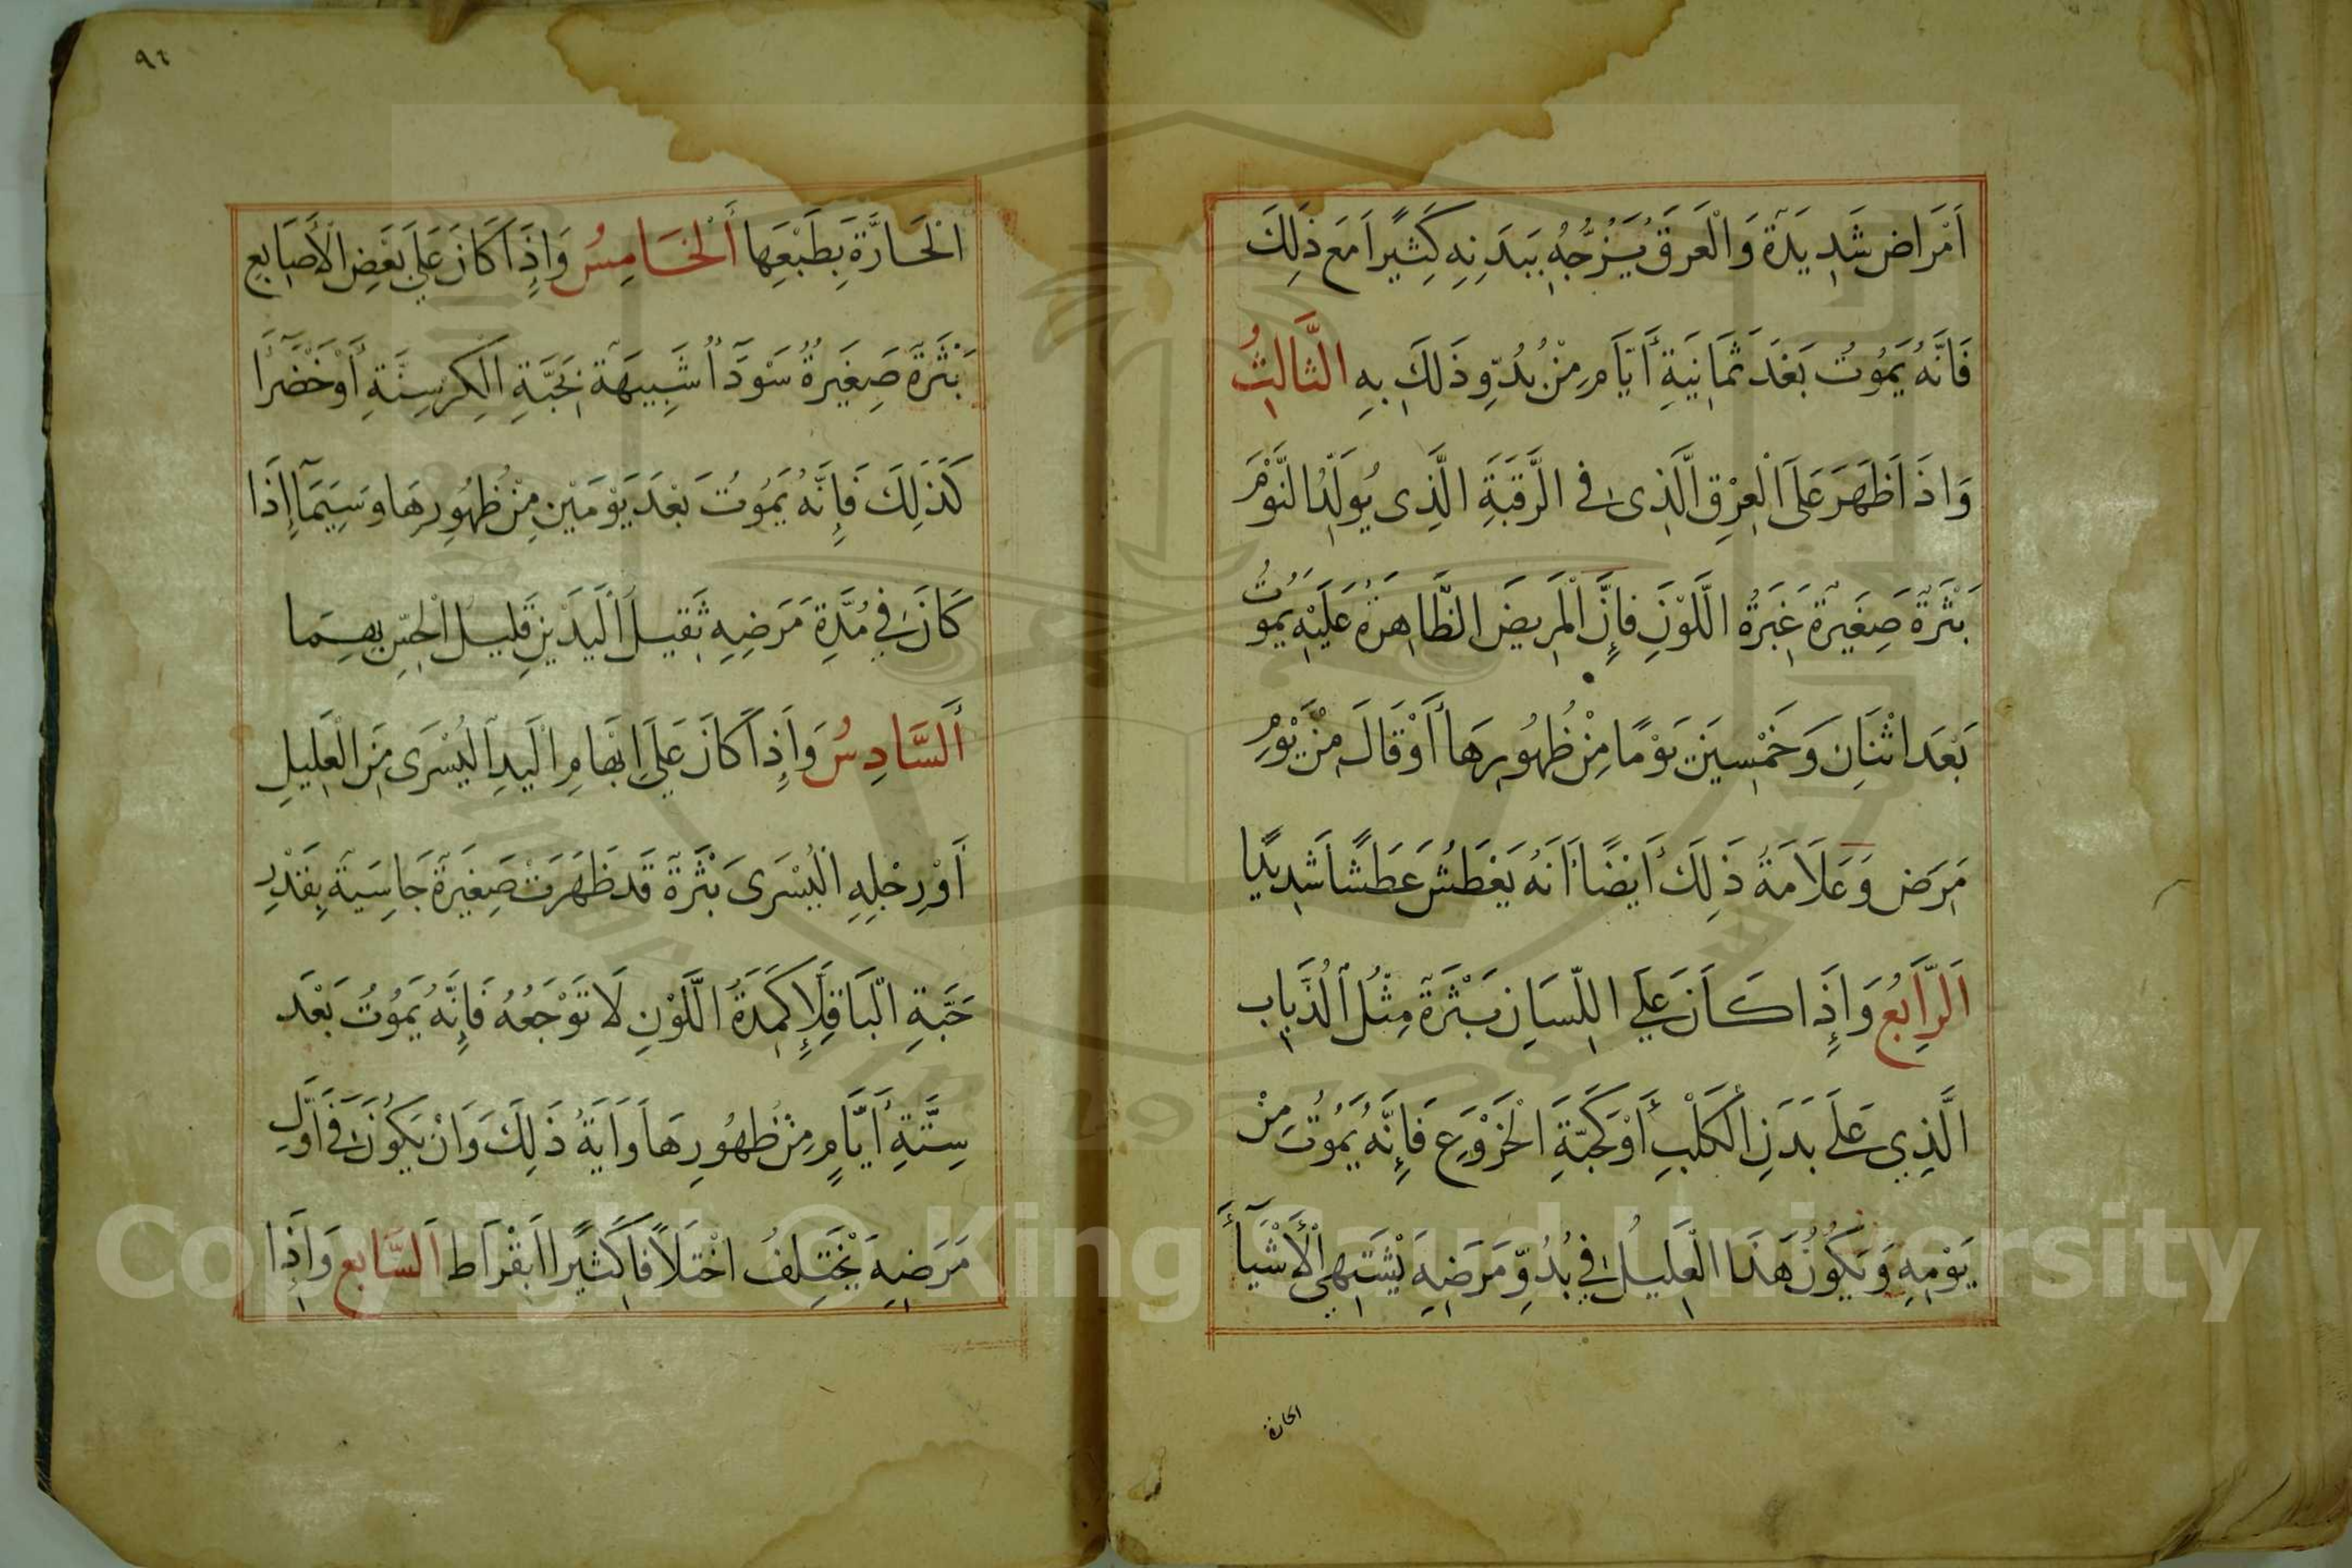 اَمْرَاض شَدِيدَةٌ وَالْعَرَقُ يَزُجُّهُ بِبَدَنِهِ كَثِيرًا مَعَ ذَلِكَ
فَانَّهُ يَمُوتُ بَعْدَ ثَمَانِيَةِ أَيَّامٍ مِنْ بُدُوِّ ذَلِكَ بِهِ الثَّالِثُ
وَاذَا ظَهَرَ عَلَى الْعِرْقِ الَّذِى فِى الرَّقَبَةِ الَّذِى يُوَلِّدُ النَّوْمَ
بَثْرَةٌ صَغِيرَةٌ غَبَرَةُ اللَّوْنِ فَإِنَّ الْمَرِيضَ الظَّاهِرَةُ عَلَيْهِ يَمُوتُ
بَعْدَ اثْنَانِ وَخَمْسِينَ يَوْمًا مِنْ ظُهُورِهَا أَوْ قَالَ مِنْ يَوْمِ
مَرَضٍ وَعَلَامَةُ ذَلِكَ أَيْضًا أَنَهُ يَعْطَشُ عَطَشًا شَدِيدًا
اَلرَّابِعُ وَإِذَا كَانَ عَلَى اللِّسَانِ بَثْرَةٌ مِثْلُ الذُّبَابِ
الَّذِي عَلَى بَدَنِ الْكَلْبِ أَوْ كَحَبَّةِ الْخَرْوَعِ فَإِنَّهُ يَمُوتُ مِنْ
يَوْمِهِ وَيَكُونُ هَذَا الْعَلِيلُ فِي بُدُوِّ مَرَضِهِ يَشْتَهِي الْأَشْيَآءَ
الحارة
٩٦
الْحَارَّةَ بِطَبْعِهَا اَلْخَامِسُ وَإِذَا كَانَ عَلَى بَعْضِ الْأَصَابِعِ
بَثْرَةٌ صَغِيرَةٌ سَوْدَآءُ شَبِيهَةٌ بِحَبَّةِ الْكِرْسِنَّةِ أَوْ خَضْرَآءَ
كَذَلِكَ فَإِنَّهُ يَمُوتُ بَعْدَ يَوْمَيْنِ مِنْ ظُهُورِهَا وَسِيَمَا إِذَا
كَانَ فِي مُدَّةِ مَرَضِهِ ثَقِيلَ الْيَدَيْنِ قَلِيلُ الْحِسِّ بِهِمَا
اَلسَّادِسُ وَإِذَا كَانَ عَلَى اِبْهَامِ الْيَدِ الْيُسْرَى مِنَ الْعَلِيلِ
أَوْ رِجْلِهِ الْيُسْرَى بَثْرَةٌ قَدْ ظَهَرَتْ صَغِيرَةٌ جَاسِيَةٌ بِقَدْرِ
حَبَّةِ الْبَاقِلَّاءِ كَمِدَةُ اللَّوْنِ لَا تَوْجَعُهُ فَإِنَّهُ يَمُوتُ بَعْدَ
سِتَّةِ أَيَّامٍ مِنْ ظُهُورِهَا وَآيَةُ ذَلِكَ وَانْ يَكُونَ فِى أَوَّلِ
مَرَضِهِ يَخْتَلِفُ اخْتَلَافًا كَثِيرًا ابِقْرَاط اَلسَّابِع وَإِذَا
Copyright © King Saud University